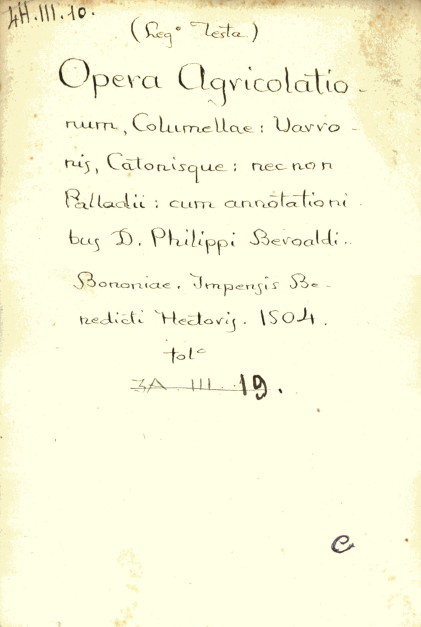 4H.III.10.
(Leg° Testa)
Opera Agricolatio-
num, Columellae: Varro-
nis, Catonisque: nec non
Palladii: cum annotationi
bus D. Philippi Beroaldi..
Bononiae. Impensis Be-
nedicti Hectoris. 1504.
fol°
3A III 19.
C